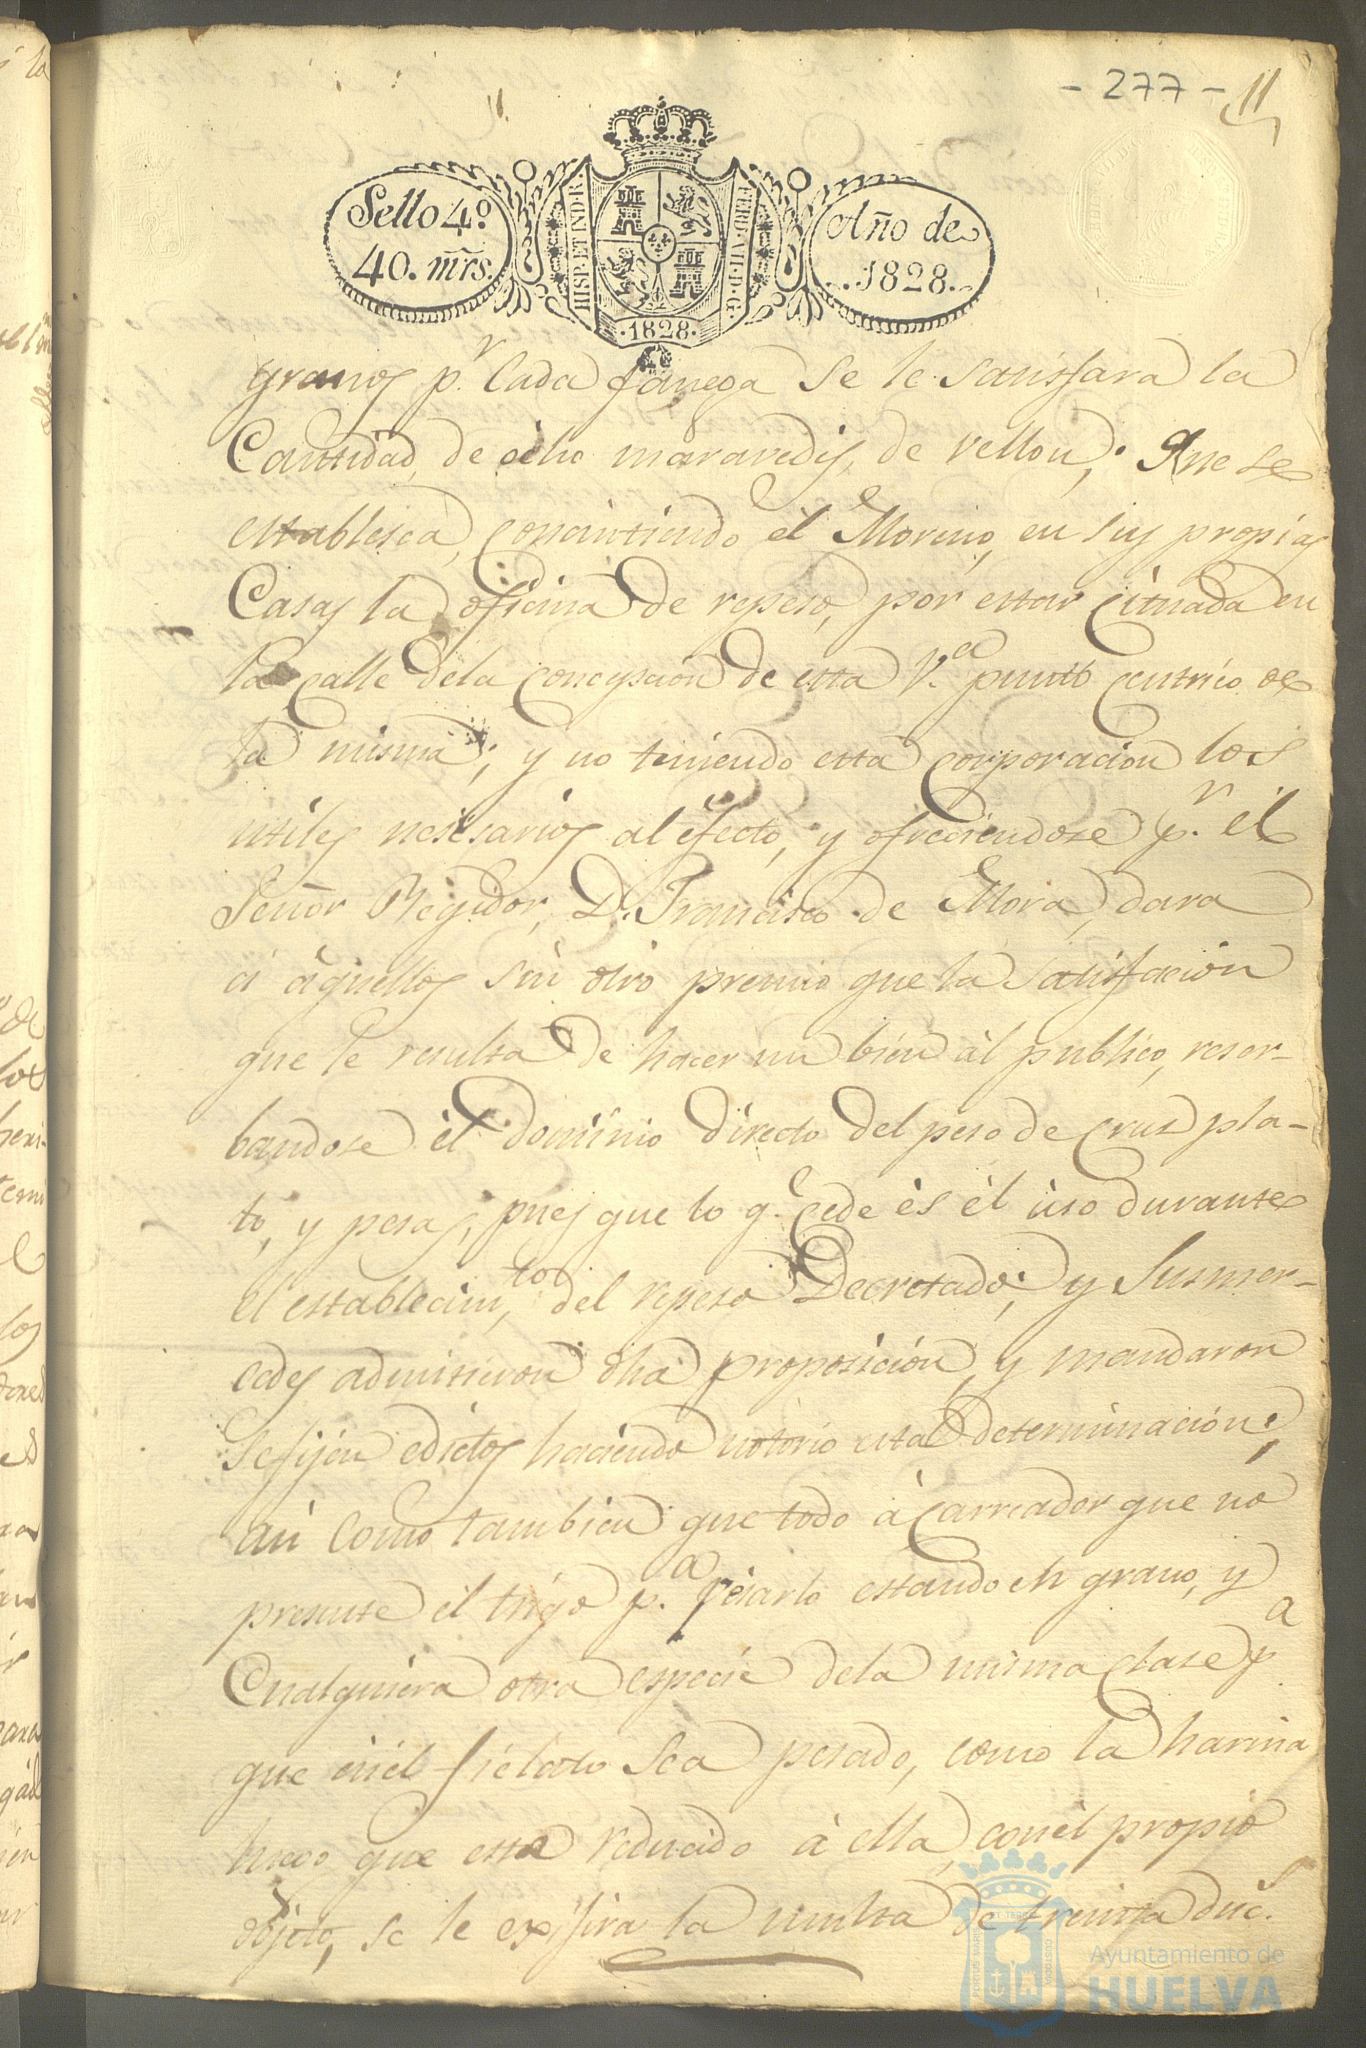 - 277 - 11
Sello 4º
40. mrs.
HISP. ET IND. R.
FERD. VII. D. G.
·1828·
Año de
1828.
granos p.r Cada fanega se le satisfara la
Cantidad, de ocho maravedis, de vellon; Que se
establesca, consintiendo él Moreno, en sus propias
Casas la oficina de repeso, por estar cituada en
la calle dela Concepcion de esta V.ª punto centrico de
la misma; y no teniendo esta corporacion los
utiles nesesarios al efecto, y ofreciendose p.r él
Señor Regidor, D. Francisco de Mora, dara
á aquellos sin otro premio que la satisfacion
que le resulta de hacer un bien ál publico, reser-
bandose él dominio directo del peso de cruz pla-
to, y pesas, pues que lo q.e cede és él uso durante
el establecim.to del repeso Decretado; y Susmer-
cedes admitieron dha proposición, y mandaron
se fijen edictos haciendo notorio esta determinación;
asi como tambien que todo acarreador que nó
presente él trigo p.ª pesarlo estando en grano, y
Cualquiera otra especie dela misma clase p.ª
que enél fielato sea pesado, como la harina
luego que este reducido á ella, conél propio
objeto, se le exijira la multa de treinta duc.s
Ayuntamiento de
HUELVA